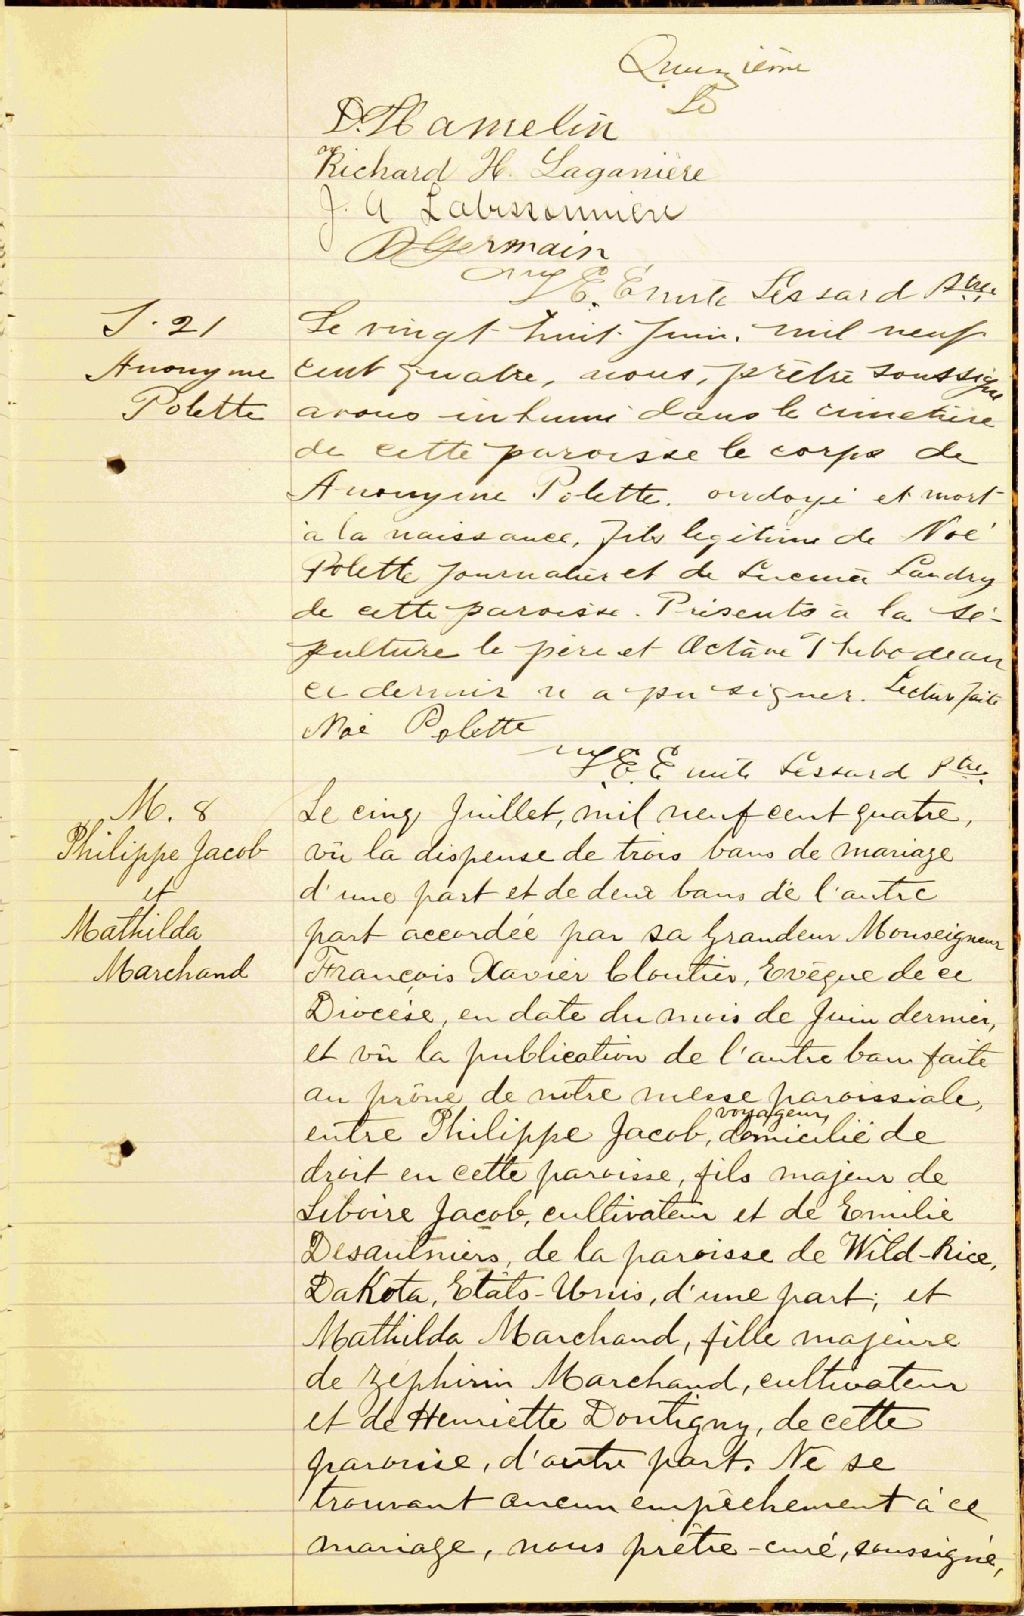 Quinzième
Ls
D. Hamelin
Richard H. Laganière
J. A Labissonnière
D Germain
J. E. Émile Lessard Ptre
S. 21
Anonyme
Polette
Le vingt huit Juin, mil neuf
cent quatre, nous, prêtre soussigné
avons inhumé dans le cimetière
de cette paroisse le corps de
Anonyme Polette, ondoyé et mort
à la naissance, fils légitime de Noé
Polette journalier et de Landry
de cette paroisse. Présents à la sé-
pulture le père et Octave Thibodeau
ce dernier n a pu signer. Lecture faite
Noé Polette
J. E. Emile Lessard Ptre.
M. 8
Philippe Jacob
et
Mathilda
Marchand
Le cinq Juillet, mil neuf cent quatre,
vû la dispense de trois bans de mariage
d'une part et de deux bans de l'autre
part accordée par sa Grandeur Monseigneur
François Xavier Cloutier, Evêque de ce
Diocèse, en date du mois de Juin dernier,
et vû la publication de l'autre ban faite
au prône de notre messe paroissiale,
entre Philippe Jacob, voyageur, domicilié de
droit en cette paroisse, fils majeur de
Liboire Jacob, cultivateur et de Emilie
Desaulniers, de la paroisse de Wild-Rice,
Dakota, Etats-Unis, d'une part; et
Mathilda Marchand, fille majeure
de Zéphirin Marchand, cultivateur
et de Henriette Dontigny, de cette
paroisse, d'autre part. Ne se
trouvant aucun empêchement à ce
mariage, nous prêtre-curé, soussigné,